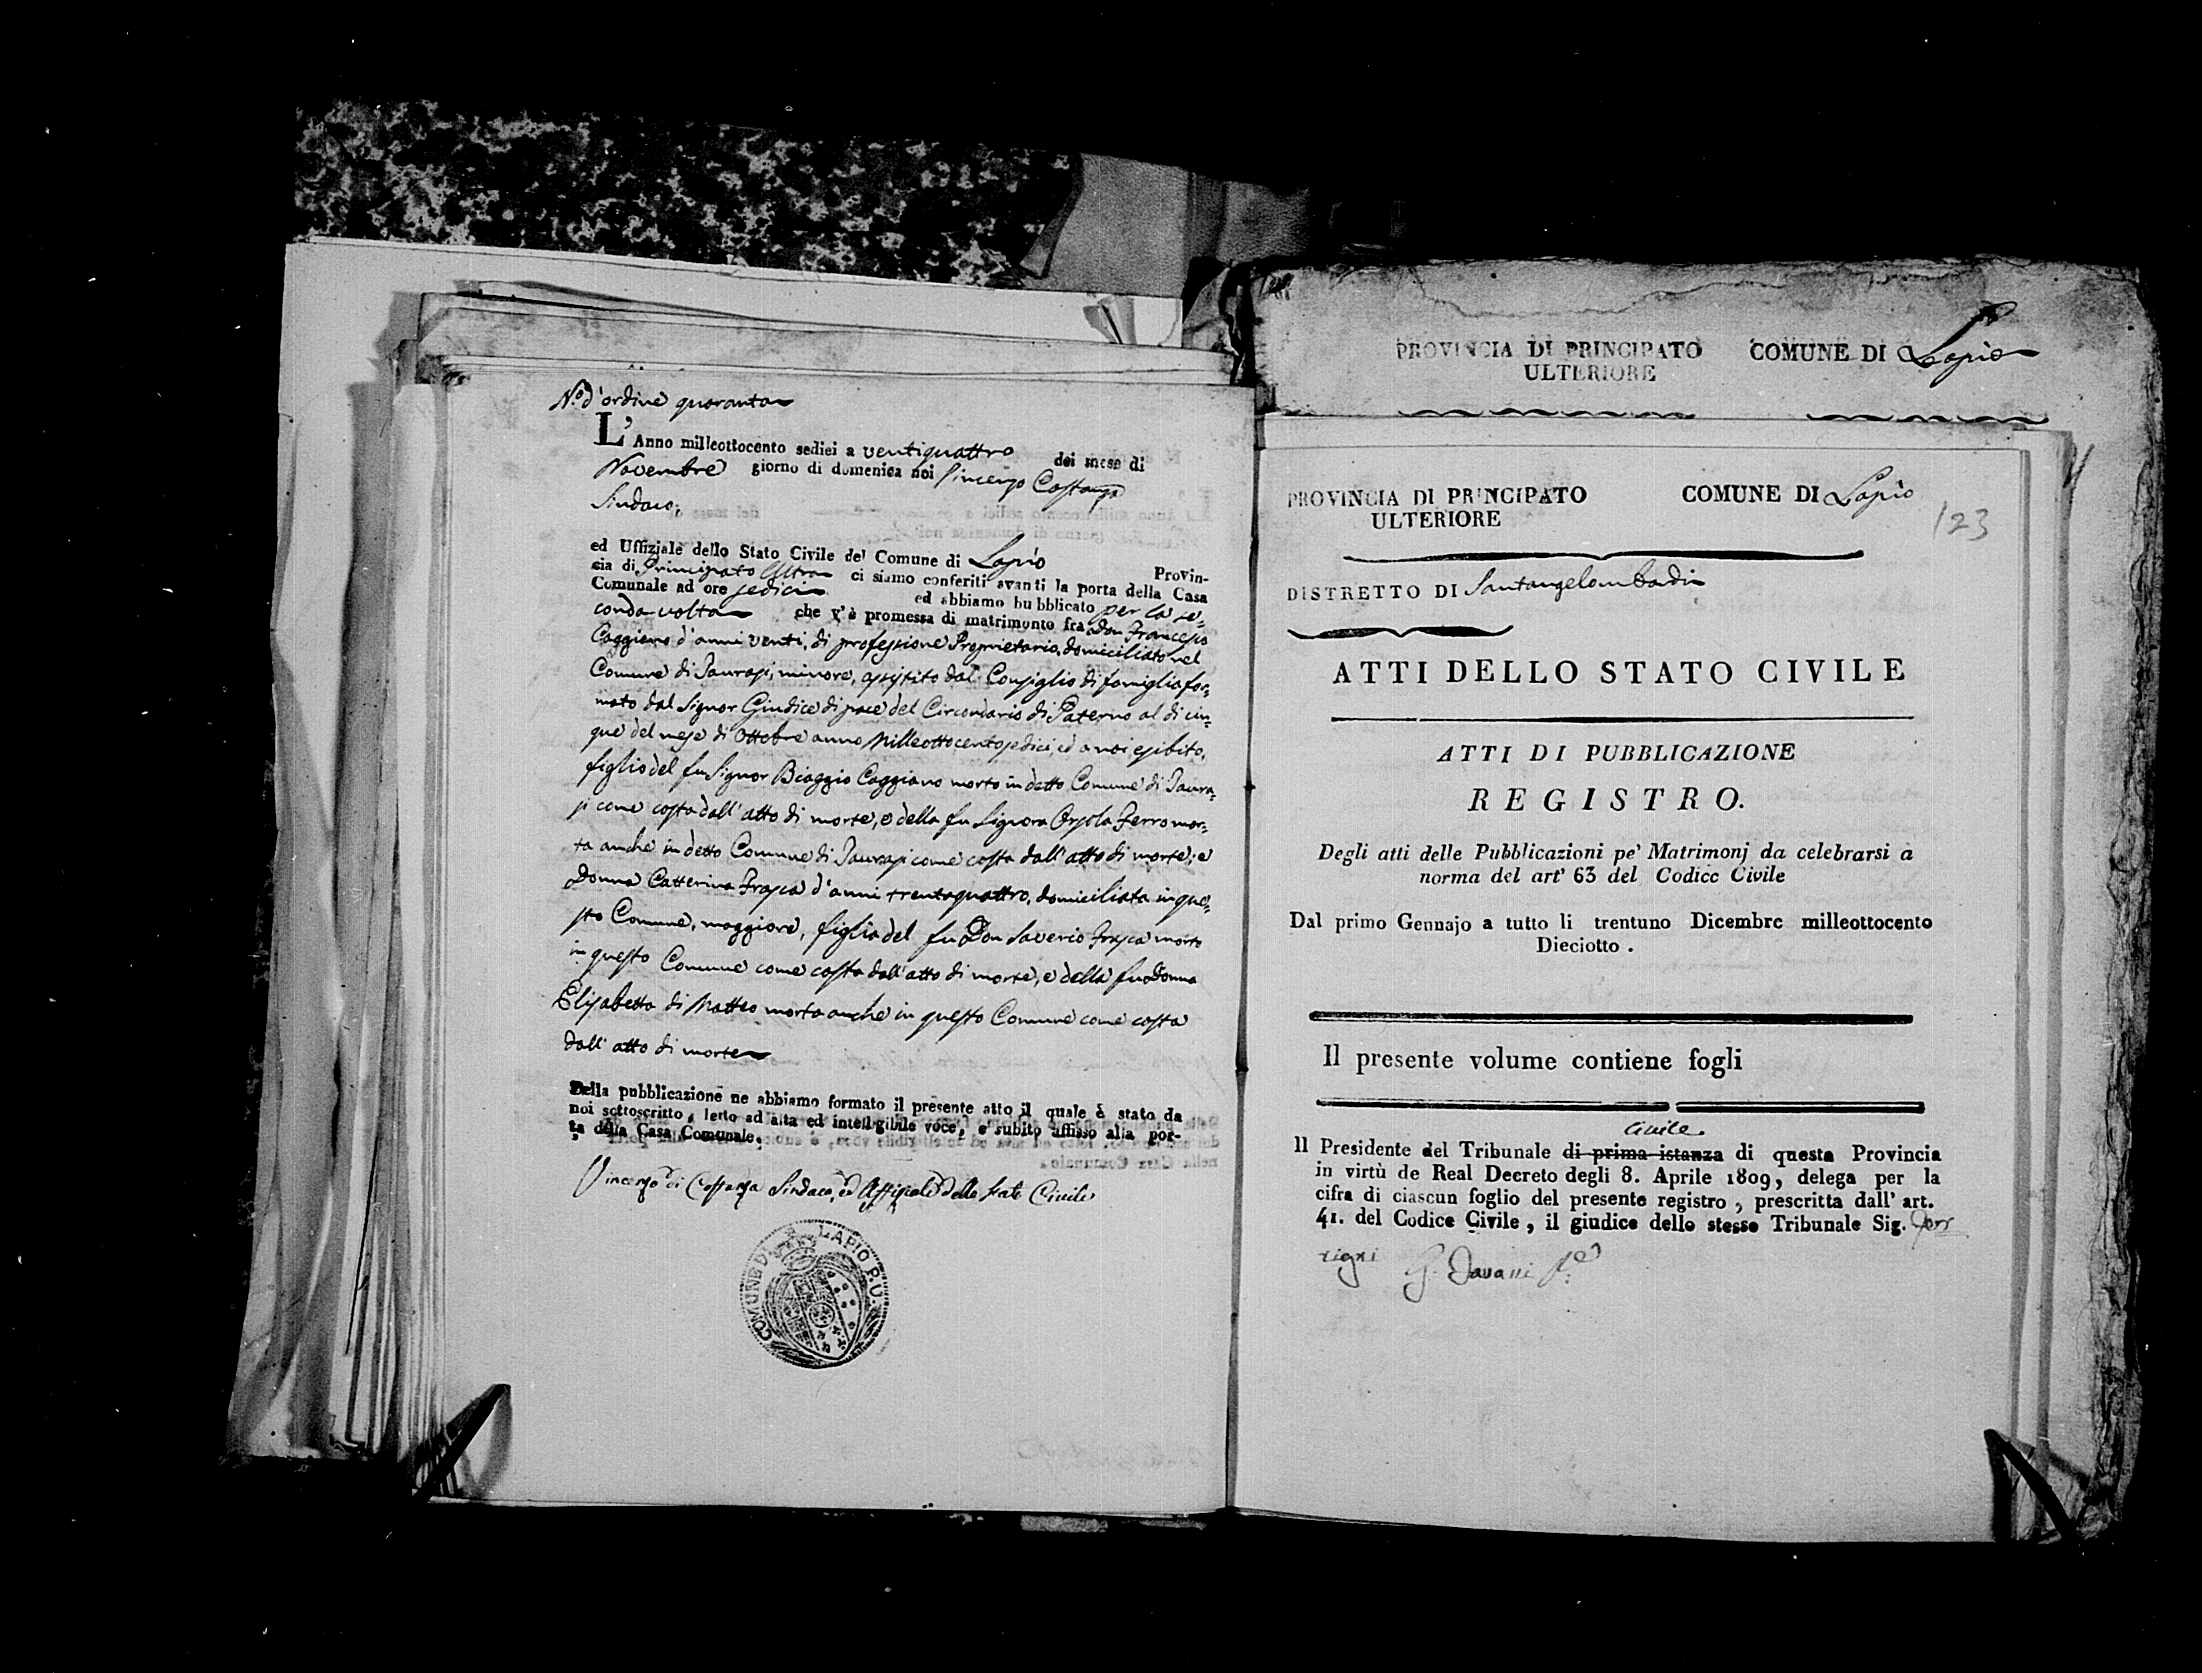 N.º d'ordine quaranta
L'Anno milleottocento sedici a ventiquattro del mese di
Novembre giorno di domenica noi Vincenzo Costanza
Sindaco,
ed Uffiziale dello Stato Civile del Comune di Lapio Provin-
cia di Principato Ultra ci siamo conferiti avanti la porta della Casa
Comunale ad ore sedici ed abbiamo pubblicato per la se=
conda volta che v'è promessa di matrimonto fra Don Francesco
Caggiano d'anni venti, di professione Proprietario, domiciliato nel
Comune di Taurasi, minore, assistito dal Consiglio di famiglia for=
mato dal Signor Giudice di pace del Circondario di Paterno al di cin=
que del mese di Ottobre anno Milleottocentosedici, ed a noi esibito,
figlio del fu Signor Biaggio Caggiano morto in detto Comune di Taura=
si come costa dall'atto di morte, e della fu Signora Orsola Ferro mor=
ta anche in detto Comune di Taurasi come costa dall'atto di morte; e
Donna Catterina Frasca d'anni trentaquattro, domiciliata in que=
sto Comune, maggiore, figlia del fu Don Saverio Frasca morto
in questo Comune come costa dall'atto di morte, e della fu Donna
Elisabetta di Matteo morta anche in questo Comune come costa
dall'atto di morte
Della pubblicazione ne abbiamo formato il presente atto il quale è stato da
noi sottoscritto, letto ad alta ed intelligibile voce, e subito affisso alla por-
ta della Casa Comunale.
Vincenzo di Costanza Sindaco, ed Uffiziale dello Stato Civile
COMUNE DI LAPIO P.U.
PROVINCIA DI PRINCIPATO COMUNE DI Lapio
ULTERIORE
PROVINCIA DI PRINCIPATO COMUNE DI Lapio
ULTERIORE
123
DISTRETTO DI Santangelombardi
ATTI DELLO STATO CIVILE
ATTI DI PUBBLICAZIONE
REGISTRO.
Degli atti delle Pubblicazioni pe' Matrimonj da celebrarsi a
norma del art' 63 del Codice Civile
Dal primo Gennajo a tutto li trentuno Dicembre milleottocento
Dieciotto .
Il presente volume contiene fogli
Civile
Il Presidente del Tribunale di prima istanza di questa Provincia
in virtù de Real Decreto degli 8. Aprile 1809, delega per la
cifra di ciascun foglio del presente registro , prescritta dall' art.
41. del Codice Civile , il giudice dello stesso Tribunale Sig.